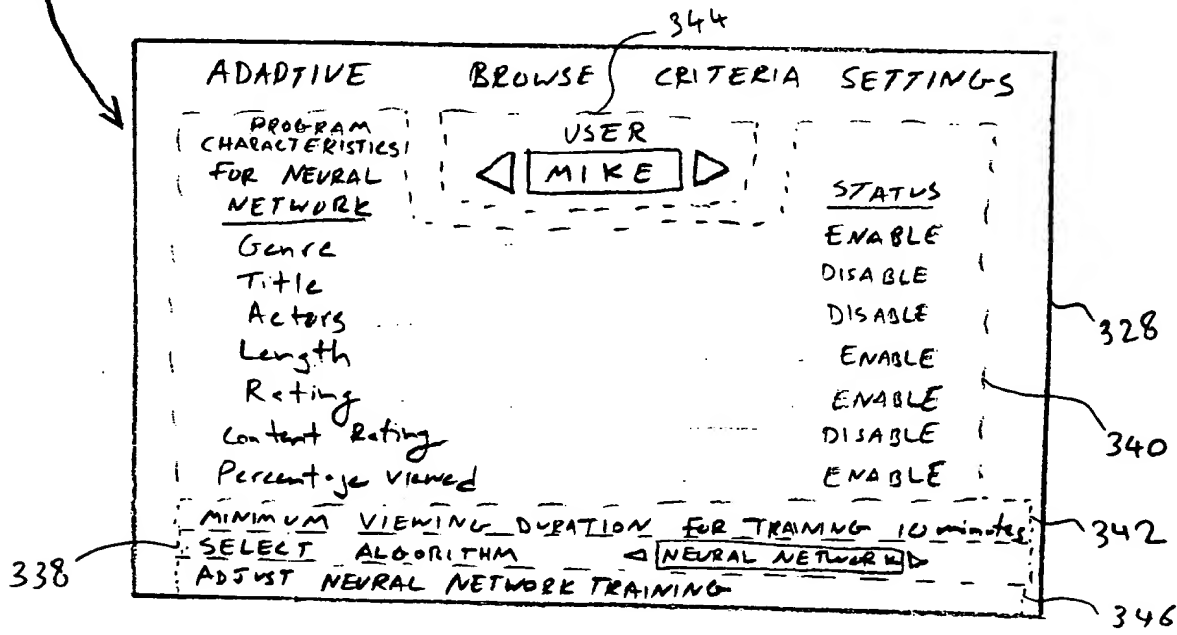 344
ADAPTIVE BROWSE CRITERIA SETTINGS
PROGRAM
CHARACTERISTICS
FOR NEURAL
NETWORK
USER
MIKE
STATUS
Genre ENABLE
Title DISABLE
Actors DISABLE
328
Length ENABLE
Rating ENABLE
340
Content Rating DISABLE
Percentage Viewed ENABLE
MINIMUM VIEWING DURATION FOR TRAINING 10 minutes
342
338
SELECT ALGORITHM NEURAL NETWORK
ADJUST NEURAL NETWORK TRAINING
346